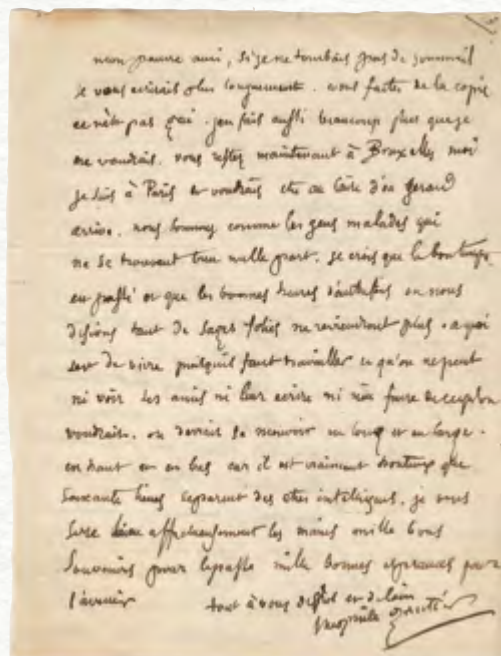 mon pauvre ami, si je ne tombais pas de sommeil
je vous ecrirais plus longuement. vous faites de la copie
ce n'est pas gai. j'en fais aussi beaucoup plus que je
ne voudrais. vous restez maintenant à Bruxelles moi
je suis à Paris et voudrais etre au Caire d'ou Gerard
arrive. nous sommes comme les gens malades qui
ne se trouvent bien nulle part. je crois que le bon temps
est passé et que les bonnes heures d'autrefois ou nous
disions tant de sages folies ne reviendront plus. a quoi
sert de vivre puisqu'il faut travailler et qu'on ne peut
ni voir ses amis ni leur ecrire ni rien faire de ce qu'on
voudrait. on devrait se mouvoir en long et en large.
en haut et en bas car il est vraiment honteux que
soixante lieues separent des etres intelligens. je vous
serre affectueusement les mains mille bons
souvenirs pour le passé mille bonnes esperances pour
l'avenir
tout à vous de près et de loin
theophile gautier